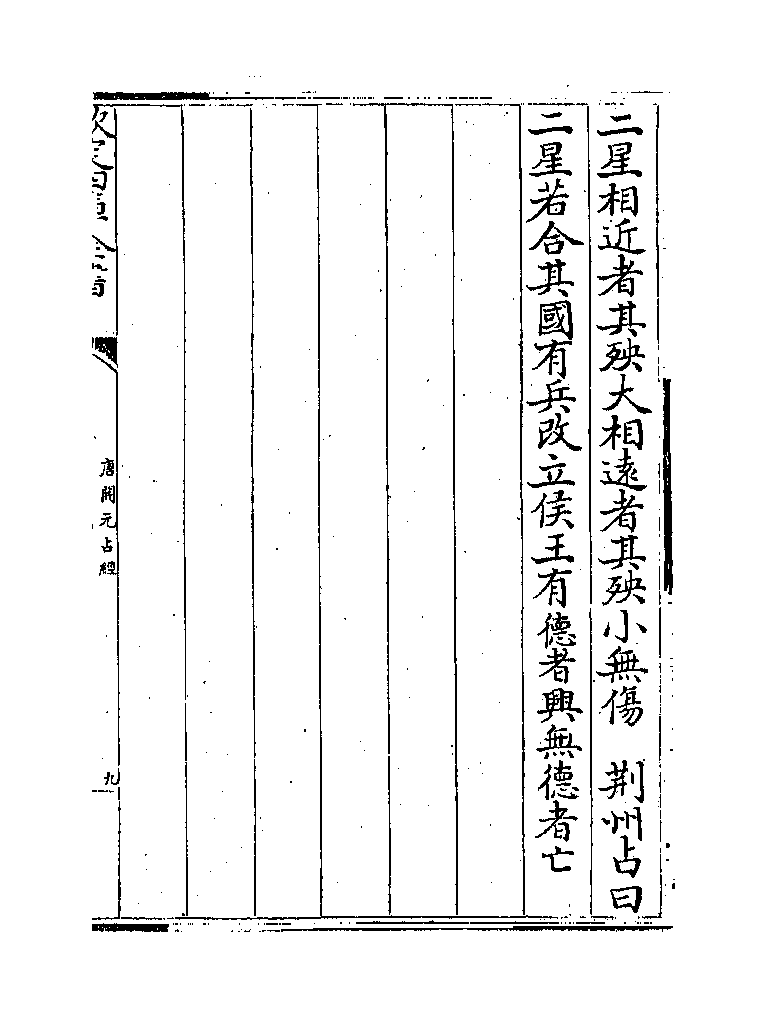 二星相近者其殃大相遠者其殃小無傷　荆州占曰
二星若合其國有兵改立侯王有德者興無德者亡
欽定四庫全書
唐開元占經
九